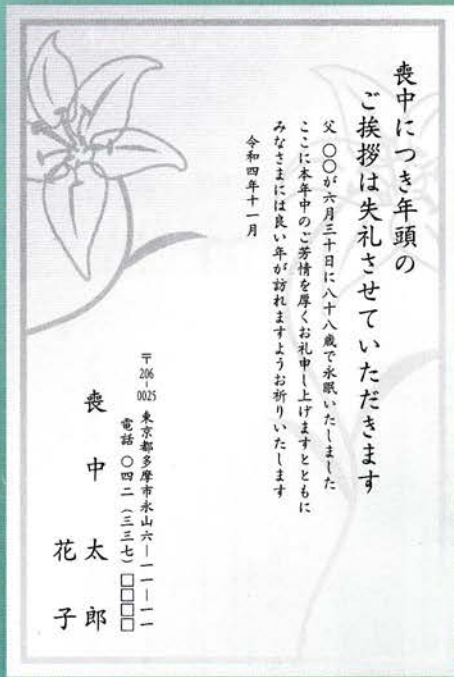 喪中につき年頭の
ご挨拶は失礼させていただきます
父 〇〇が六月三十日に八十八歳で永眠いたしました
ここに本年中のご芳情を厚くお礼申し上げますとともに
みなさまには良い年が訪れますようお祈りいたします
令和四年十一月
〒206-0025 東京都多摩市永山六―一一―一一
電話 〇四二(三三七)□□□□
喪中 太郎
花子